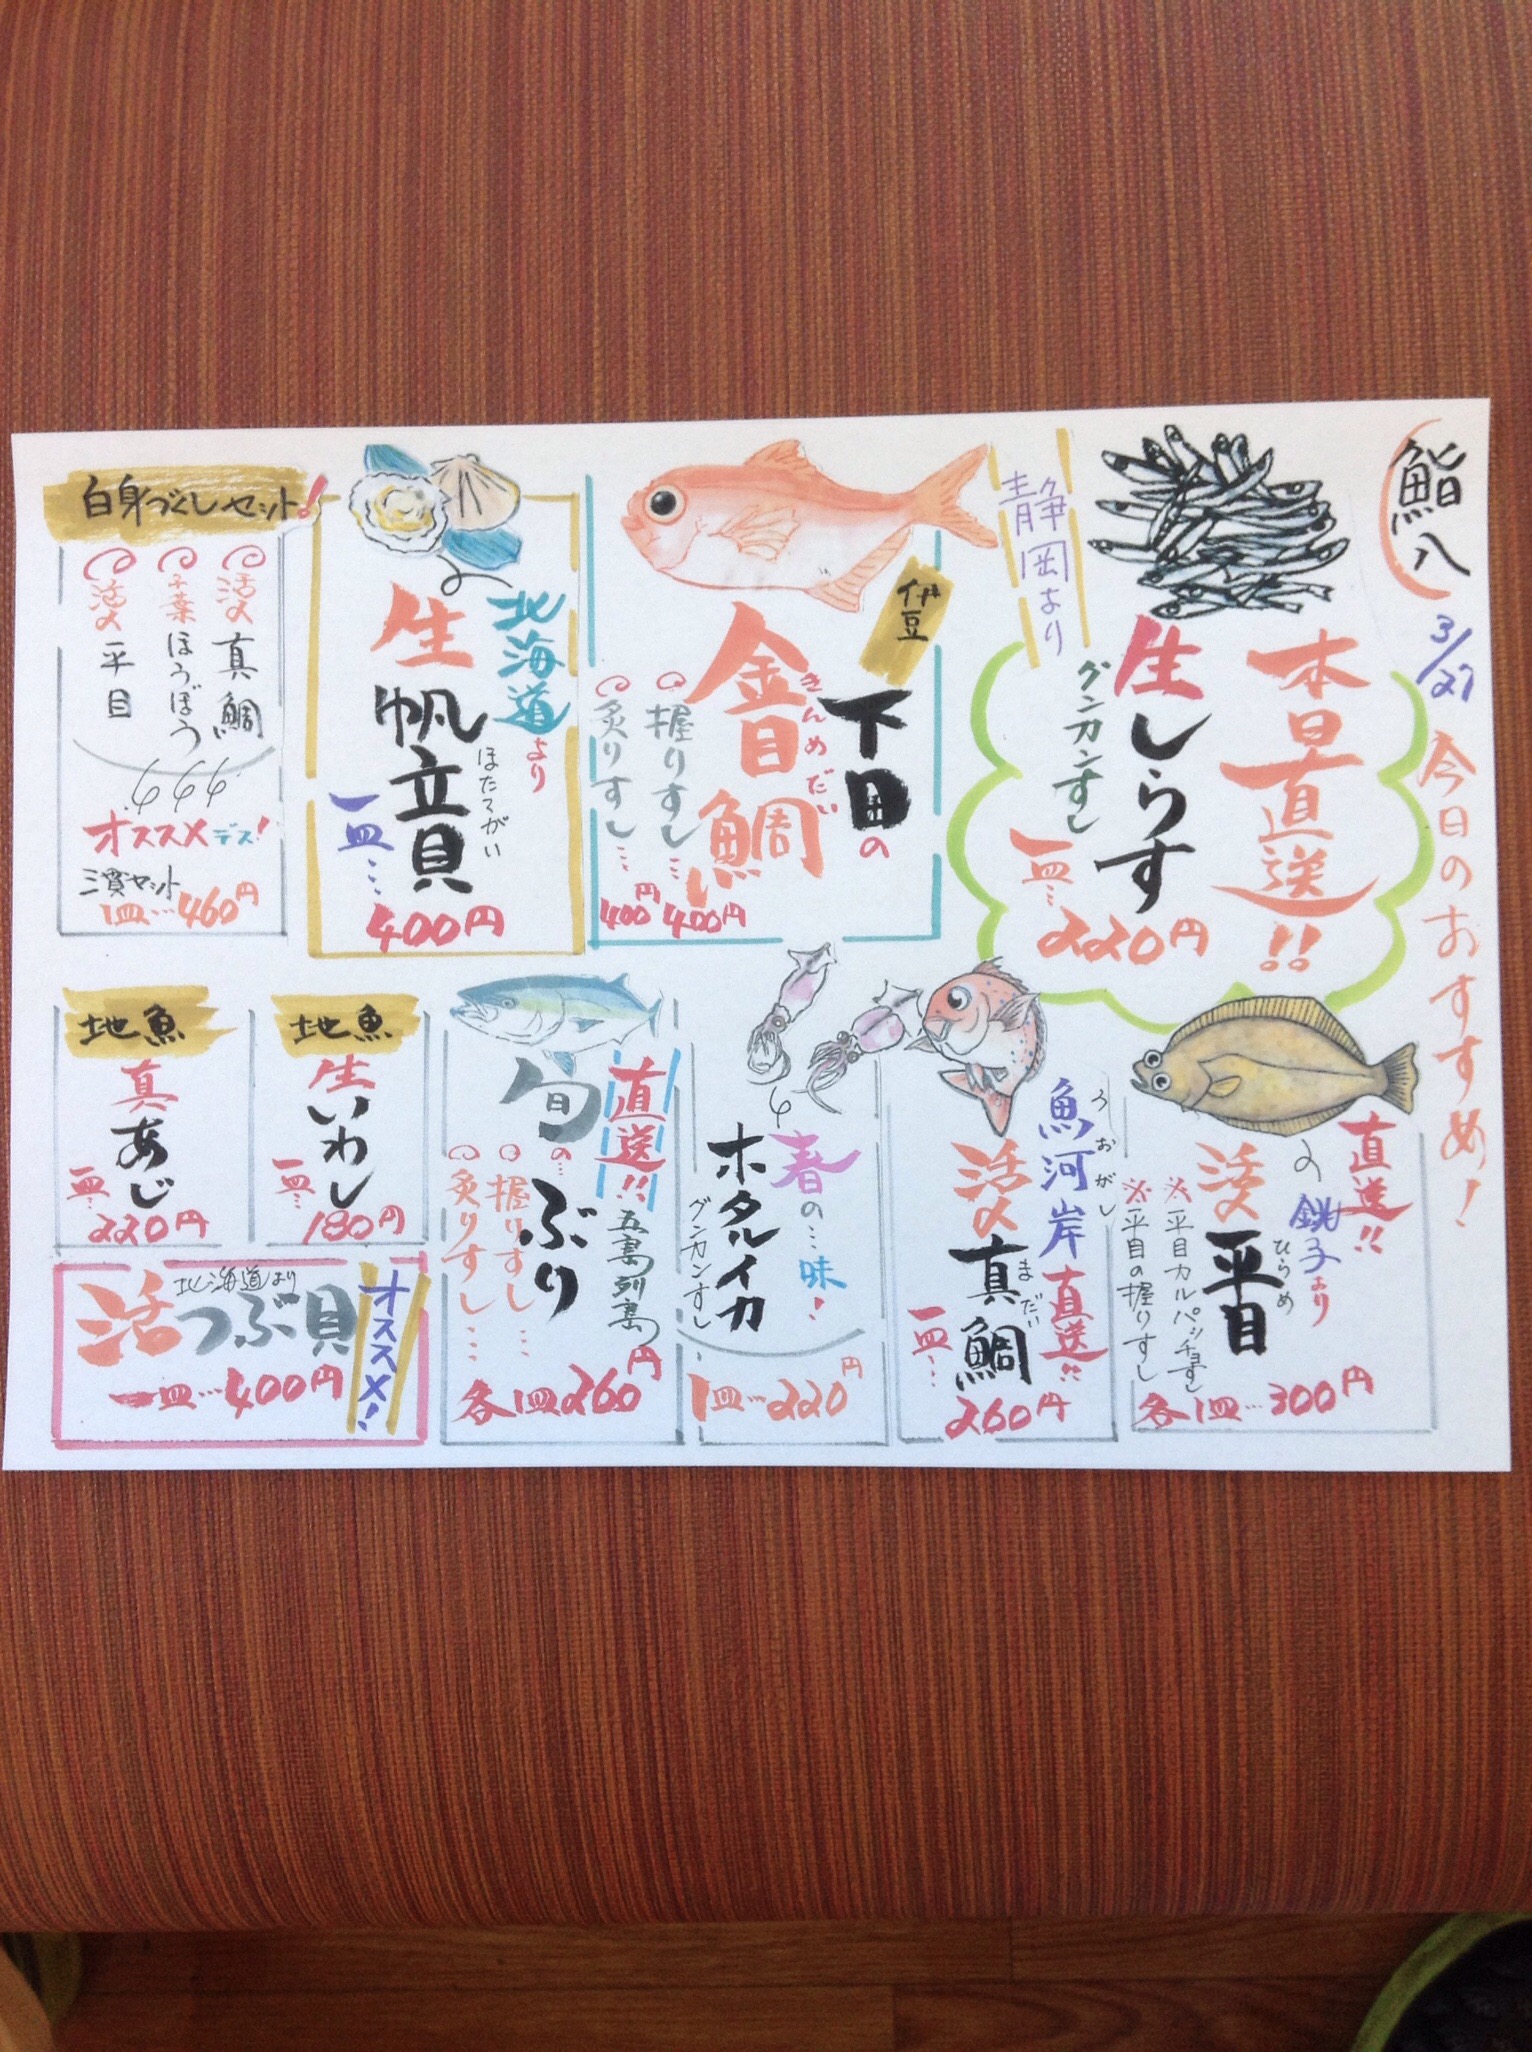 鮨八
3/27 今日のおすすめ!
本日直送!!
静岡より
生しらす
グンカンすし
一皿… 220円
伊豆
下田の
金目鯛
きんめだい
握りすし… 400円
炙りすし… 400円
北海道より
生帆立貝
ほたてがい
一皿… 400円
白身づくしセット!
活〆 真鯛
千葉 ほうぼう
活〆 平目
オススメデス!
三貫セット
1皿…460円
直送!!
銚子より
活〆平目
ひらめ
※平目カルパッチョすし
※平目の握りすし
各1皿…300円
魚河岸直送!!
うおがし
活〆真鯛
まだい
一皿… 260円
春の…味!
ホタルイカ
グンカンすし
1皿…220円
直送!!
五島列島
旬の…ぶり
握りすし…
炙りすし…
各1皿260円
地魚
生いわし
一皿… 180円
地魚
真あじ
一皿… 220円
オススメ!
北海道より
活つぶ貝
一皿…400円